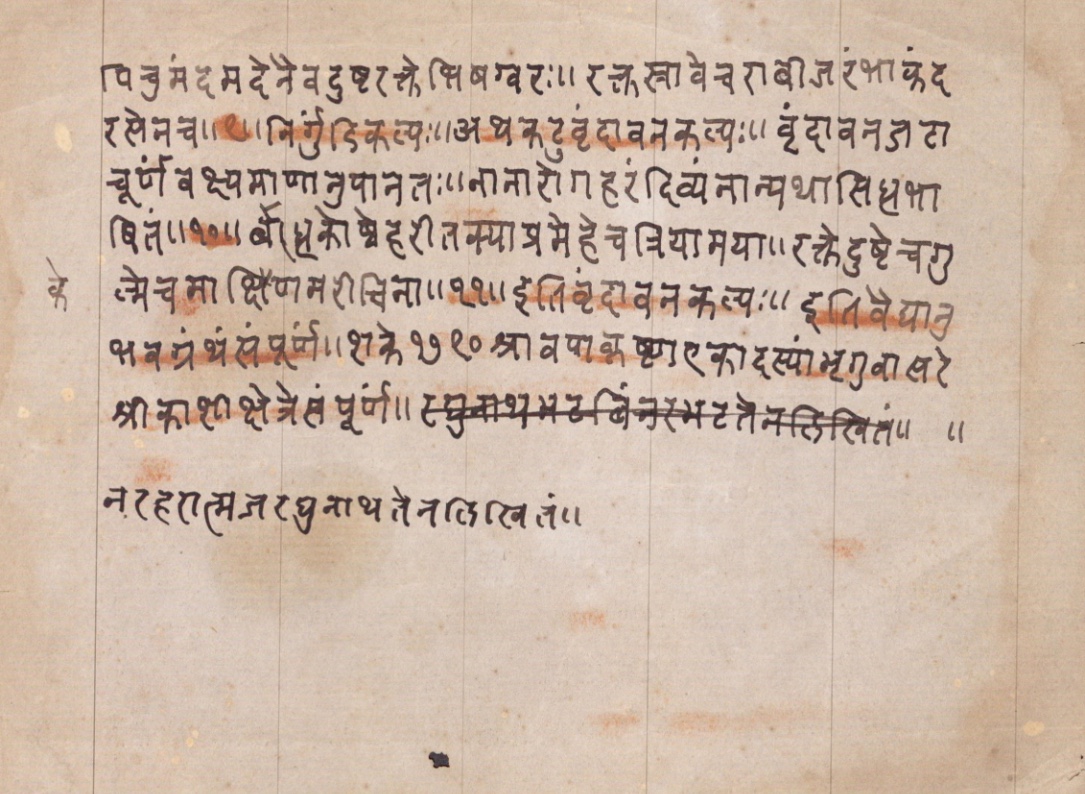 पिचुमंदमदेनैवदुष्टरक्तेभिषग्वरः॥ रक्तस्रावेचराबीजरंभाकंद
रसेनच॥९॥निर्गुंडिकल्पः॥अथकटुवृंदावनकल्पः॥ वृंदावनजटा
चूर्णंवक्ष्यमाणानुपानतः॥नानारोगहरंदिव्यंनान्यथासिधभा
षितं॥१०॥ हरीतक्याप्रमेहेचत्रियामया॥रक्तेदुष्टेचगु
ल्मेचमाक्षिणमरीचिना॥११॥इतिवृंदावनकल्पः॥ इतिवैद्यानु
के
भवग्रंथंसंपूर्णं॥शके१७१०श्रावणकृष्णएकादस्यांभृगुवासरे
श्रीकाशीक्षेत्रेसंपूर्णं॥ रघुनाथभट तेनलिखितं॥ ॥
नरहरात्मजरघुनाथतेनलिखितं॥